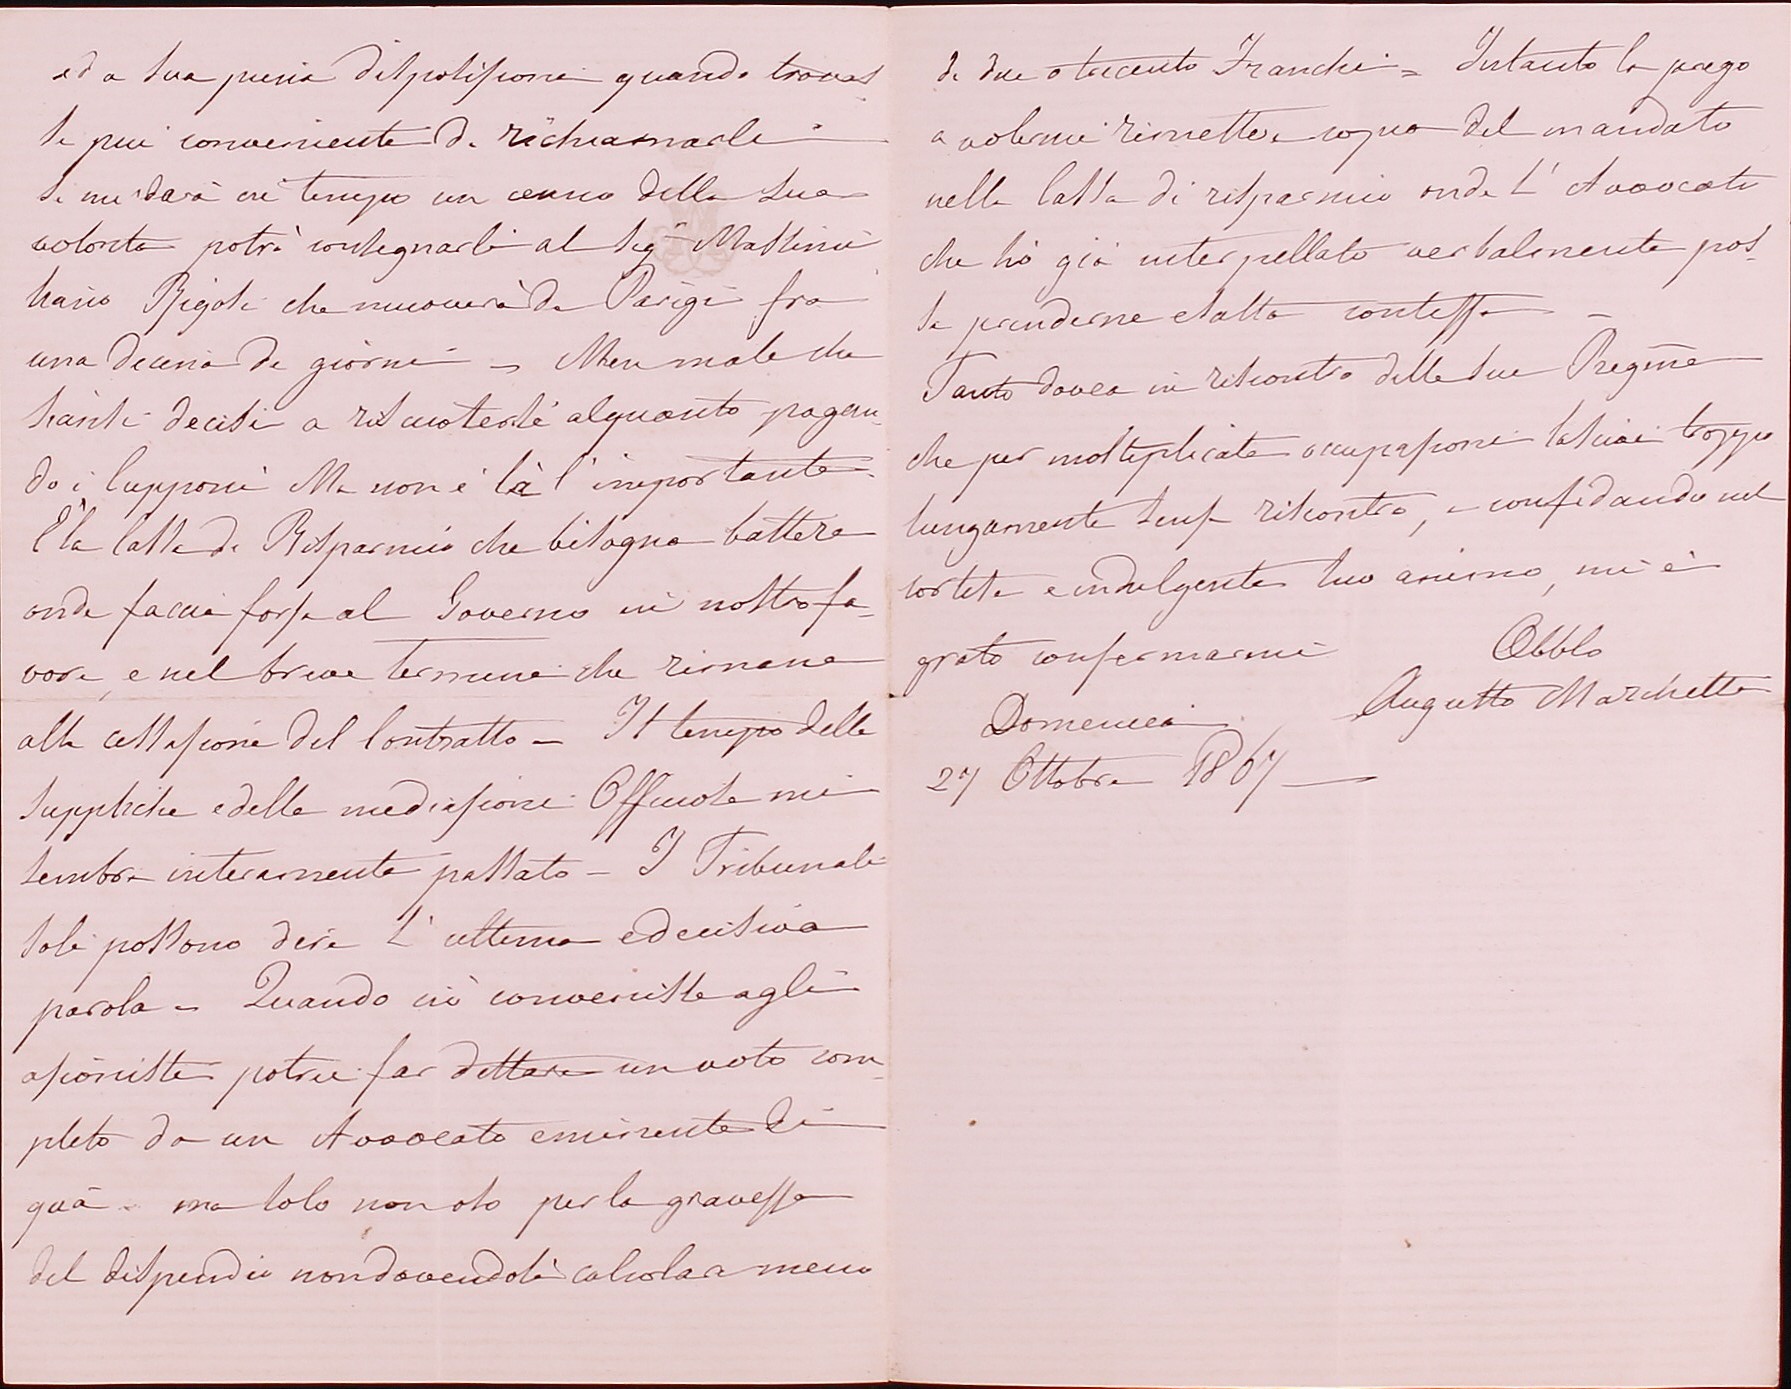 ed a sua piena disposizione quando troves
se più conveniente di richiamarli –
Se mi darà in tempo un cenno della sua
volontà potrà consegnarli al Sigr Massimi
liano Rigoli che muoverà da Parigi fra
una decina di giorni – Men male che
siansi decisi a riscuotersi alquanto pagan
do i Cupponi Ma non è là l'importante.
È la Cassa di Risparmio che bisogna battere
onde faccia forza al Governo in nostro fa
vore, e nel breve termine che rimane
alla cessazione del Contratto – Il tempo delle
suppliche e delle mediazioni Officiose mi
sembra interamente passato – I Tribunali
soli possono dire l'ultima e decisiva
parola – Quando ciò convenisse agli
azionisti potrei far dettare un voto com
pleto da un Avvocato eminente di
quà – ma solo non oso per la gravezza
del dispendio non dovendosi calcolare meno
di due o trecento Franchi – Intanto la prego
a volermi rimettere copia del mandato
nella Cassa di risparmio onde l'Avvocato
che hò già interpellato verbalmente pos
sa prenderne esatta contezza –
Tanto dovea in riscontro delle sue Pregme
che per moltiplicate occupazioni lasciai troppo
lungamente senza riscontro, e confidando nel
cortese e indulgente suo animo, mi è
grato confermarmi
Obblo
Augusto Marchetti
Domenica
27 Ottobre 1867